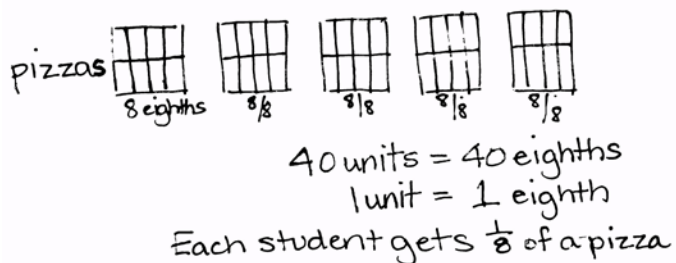 pizzas
8 eighths 8/8 8/8 8/8 8/8
40 units = 40 eighths
1 unit = 1 eighth
Each student gets 1/8 of a pizza